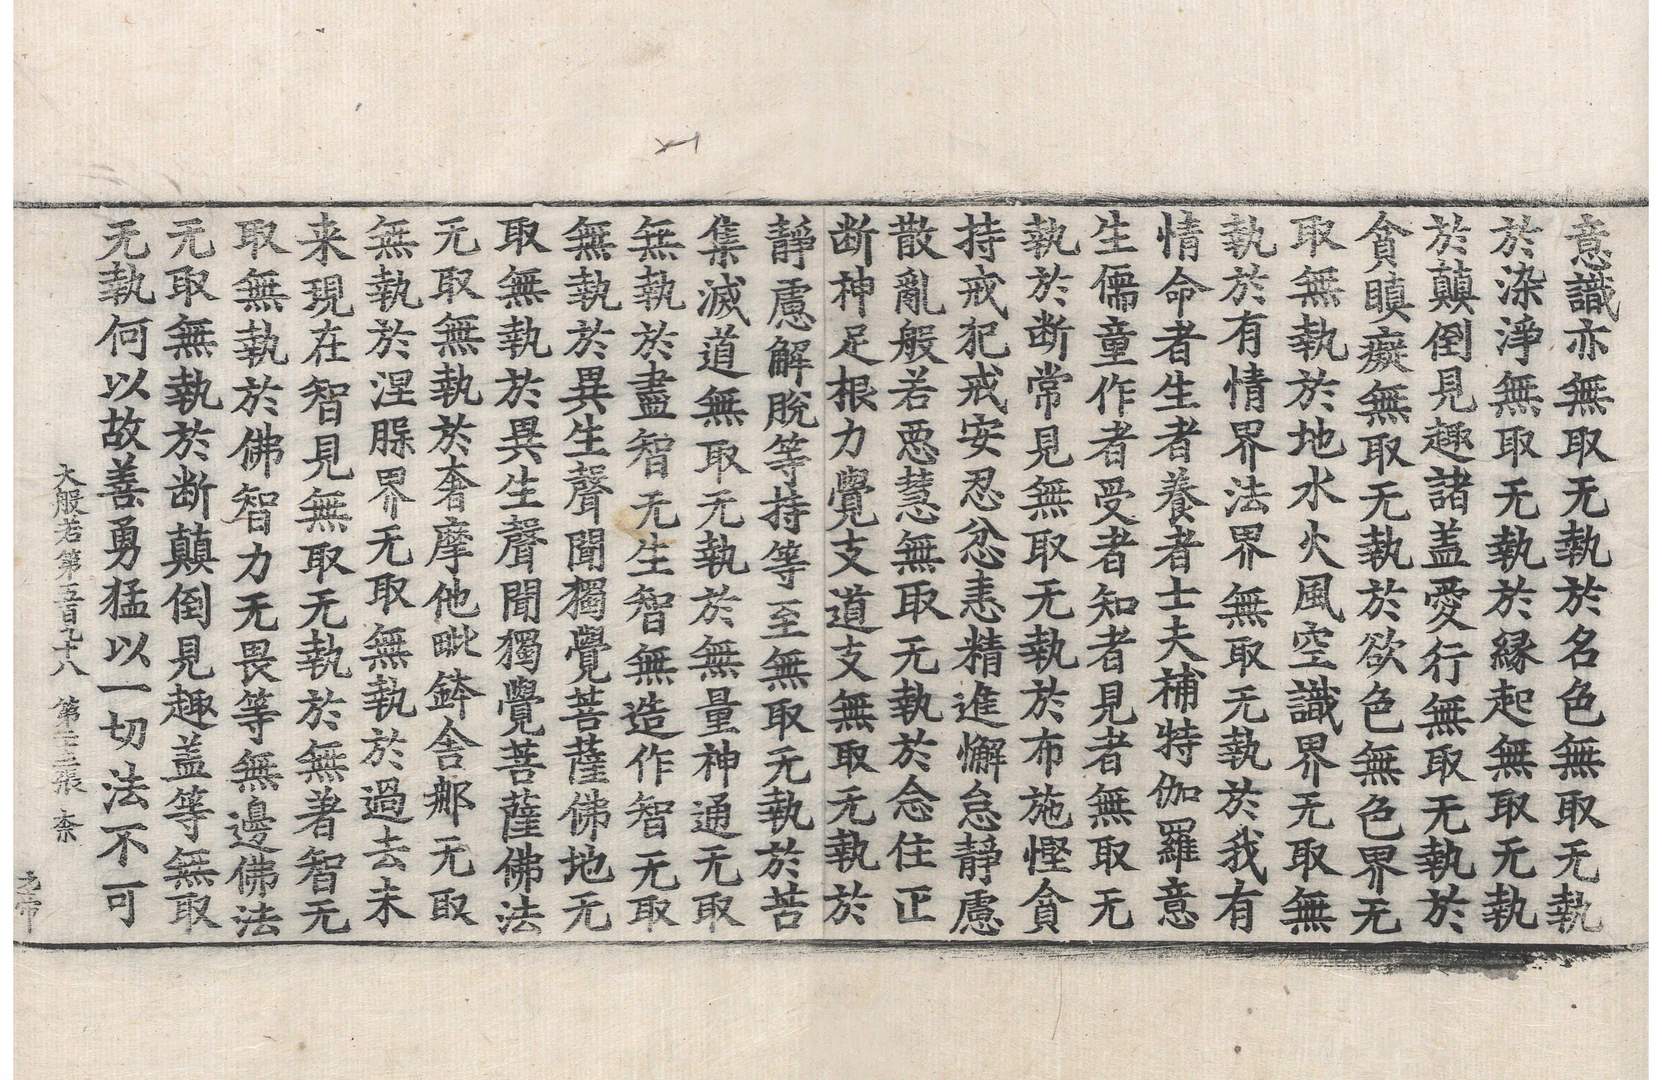 意識亦無取无執於名色無取无執
於染淨無取无執於縁起無取无執
於顛倒見趣諸盖愛行無取无執於
貪瞋癡無取无執於欲色無色界无
取無執於地水火風空識界无取無
執於有情界法界無取无執於我有
情命者生者養者士夫補特伽羅意
生儒童作者受者知者見者無取无
執於断常見無取无執於布施慳貪
持戒犯戒安忍忿恚精進懈怠靜慮
散亂般若惡慧無取无執於念住正
断神足根力覺支道支無取无執於
靜慮解脫等持等至無取无執於苦
集滅道無取无執於無量神通无取
無執於盡智无生智無造作智无取
無執於異生聲聞獨覺菩薩佛地无
取無執於異生聲聞獨覺菩薩佛法
无取無執於奢摩他毗鉢舍那无取
無執於涅槃界无取無執於過去未
来現在智見無取无執於無著智无
取無執於佛智力无畏等無邊佛法
无取無執於断顛倒見趣盖等無取
无執何以故善勇猛以一切法不可
大般若第五百九十八 第二十三張 柰